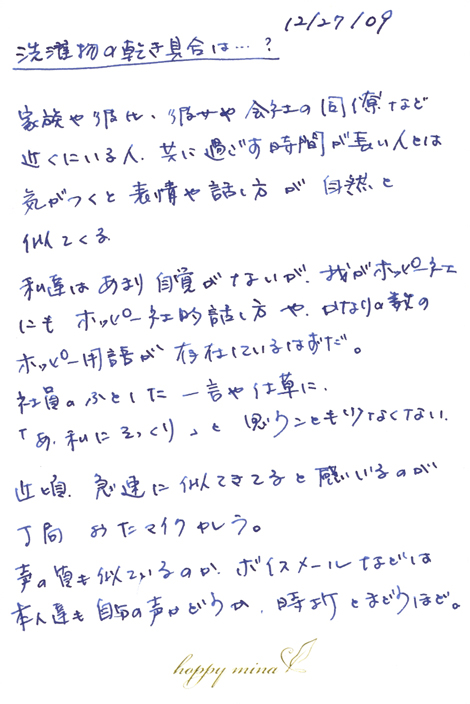 12/27/09
洗濯物の乾き具合は…?
家族や彼氏、彼女や会社の同僚など
近くにいる人、共に過ごす時間が長い人とは
気がつくと表情や話し方が自然と
似てくる
私達はあまり自覚がないが、我がホッピー社
にもホッピー社的話し方や、かなりの数の
ホッピー用語が存在しているはずだ。
社員のふとした一言や仕草に、
「あ、私にそっくり」と思うことも少なくない。
近頃、急速に似てきてると感じいるのが
丁局 おたマイクャレラ。
声の質も似ているのか、ボイスメールなどは
本人達も自分の声かどうか、時折とまどうほど。
hoppy mina